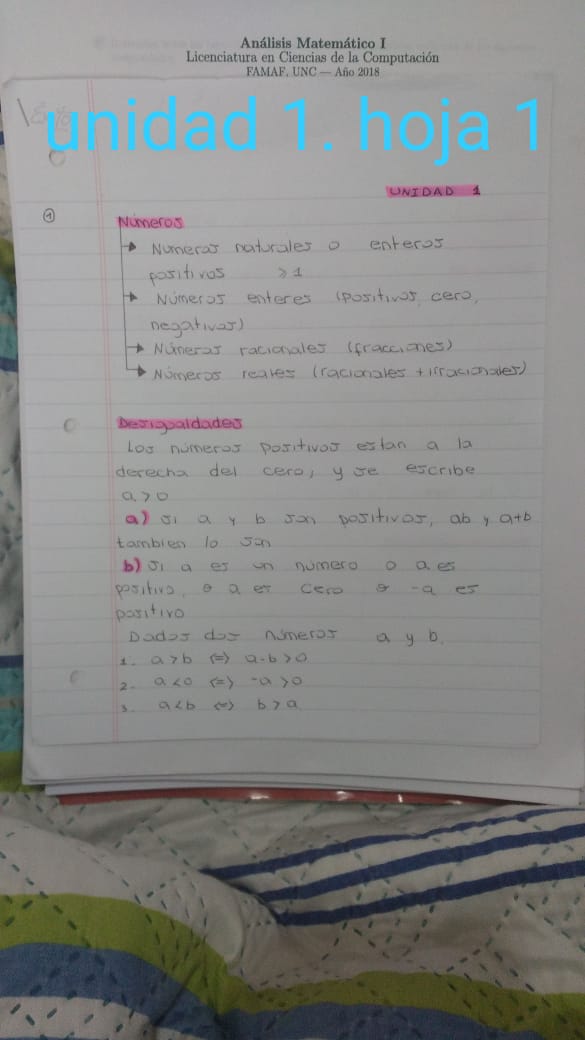 Análisis Matemático I
Licenciatura en Ciencias de la Computación
FAMAF, UNC — Año 2018
unidad 1. hoja 1
UNIDAD 1
1
Números
Números naturales o enteros
positivos ≥ 1
Números enteros (positivos, cero,
negativos)
Números racionales (fracciones)
Números reales (racionales + irracionales)
Desigualdades
Los números positivos estan a la
derecha del cero, y se escribe
a > 0
a) si a y b son positivos, ab y a+b
tambien lo son
b) si a es un número o a es
positivo, o a es cero o -a es
positivo
Dados dos números a y b.
1. a > b <=> a-b > 0
2. a < 0 <=> -a > 0
3. a < b <=> b > a